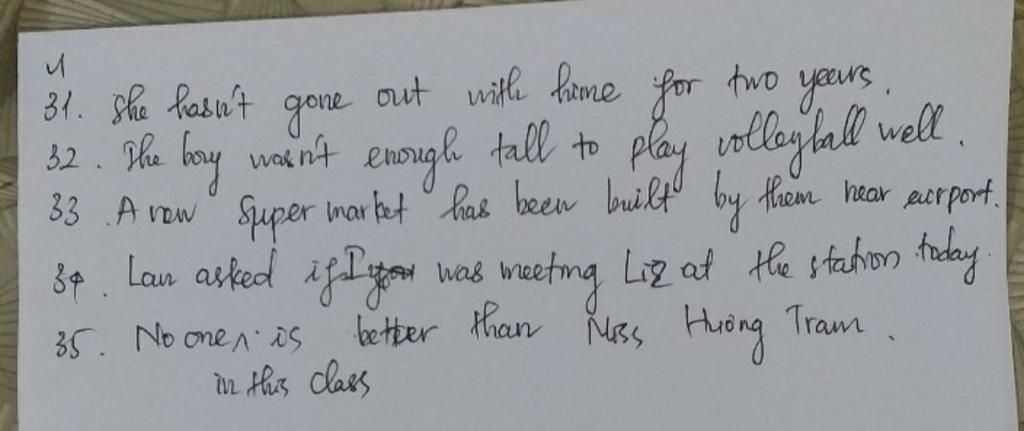 31. She hasn't gone out with hime for two years.
32. The boy wasn't enough tall to play volleyball well.
33. A new Super market has been built by them near airport.
34. Lan asked if I was meeting Liz at the station today.
35. No one ^ is better than Miss Hương Tram.
in this class